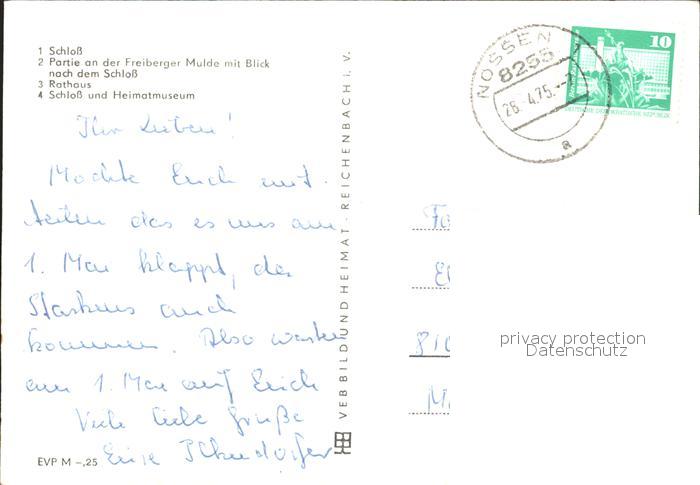 1 Schloß
2 Partie an der Freiberger Mulde mit Blick
nach dem Schloß
3 Rathaus
4 Schloß und Heimatmuseum
Ihr Lieben!
Möchte Euch mit-
teilen das es uns am
1. Mai klappt, da
auch
kommen. Also warten
am 1. Mai auf Euch
Viele liebe Grüße
EVP M –,25
VEB BILD UND HEIMAT · REICHENBACH I. V.
NOSSEN
8255
26.4.75.
a
10
DEUTSCHE DEMOKRATISCHE REPUBLIK
Fa
El
810
M
privacy protection
Datenschutz